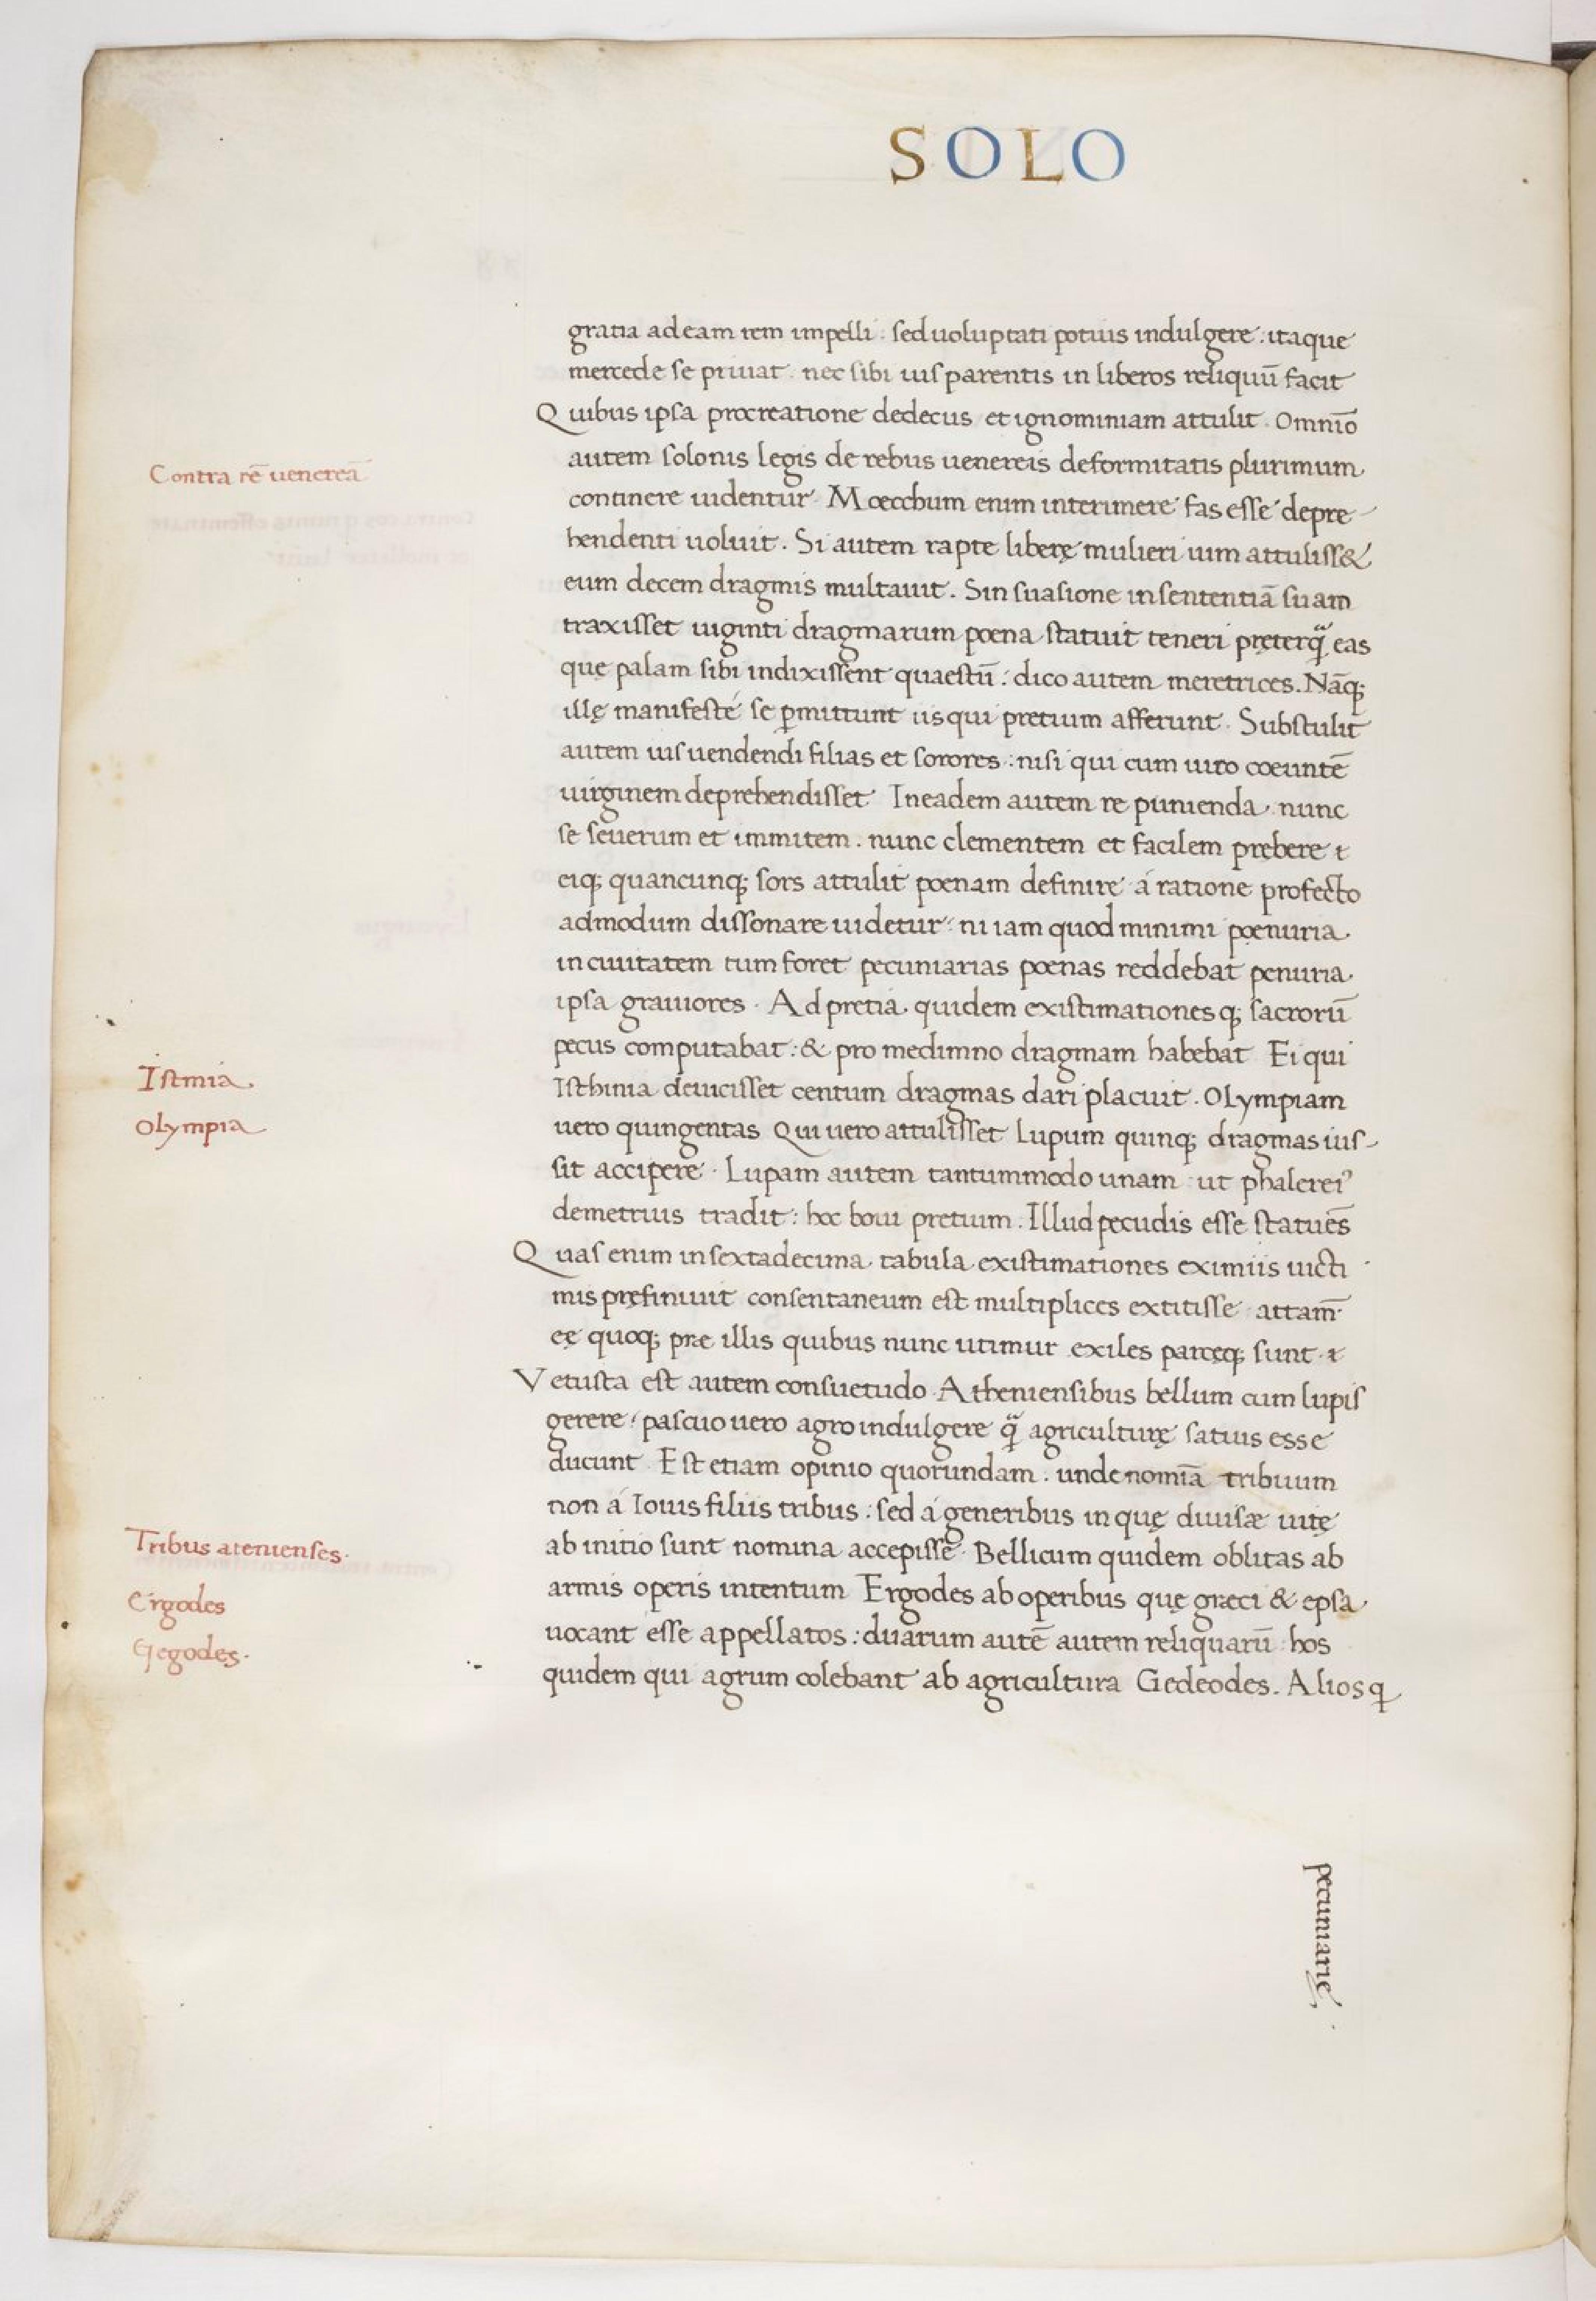 SOLO
gratia ad eam rem impelli : sed uoluptati potius indulgere : itaque
mercede se priuat . nec sibi ius parentis in liberos reliquū facit
Quibus ipsa procreatione dedecus et ignominiam attulit . Omnīo
autem solonis legis de rebus uenereis deformitatis plurimum
Contra rē uenereā
continere uidentur Moecchum enim interimere fas esse depre-
hendenti uoluit . Si autem rapte liberę mulieri uim attuliss&
eum decem dragmis multauit . Sin suasione in sententiā suam
traxisset uiginti dragmarum poena statuit teneri pręterq̃ eas
quę palam sibi indixissent quaestū : dico autem meretrices . Nāq;
illę manifeste se p̲mittunt iis qui pretium afferunt . Substulit
autem ius uendendi filias et sorores : nisi qui cum uiro coeuntē
uirginem deprehendisset In eadem autem re punienda . nunc
se seuerum et immitem . nunc clementem et facilem prębere &
eiq; quancunq; sors attulit poenam definire á ratione profecto
admodum dissonare uidetur : ni iam quod minimi poenuria
in ciuitatem tum foret pecuniarias poenas reddebat penuria
ipsa grauiores . Ad pretia quidem existimationesq; sacrorū
pecus computabat : & pro medimno dragmam habebat Ei qui
Istmia
Isthinia deuicisset centum dragmas dari placuit . Olympiam
Olympia
uero quingentas Qui uero attulisset Lupum quinq; dragmas ius-
sit accipere . Lupam autem tantummodo unam : ut phalerei⁹
demetrius tradit : hoc boui pretium . Illud pecudis esse statuēs
Quas enim in sextadecima tabula existimationes eximiis uicti
mis pręfiniuit consentaneum est multiplices extitisse attam̄
eę quoq; prae illis quibus nunc utimur exiles parcęq; sunt . &
Vetusta est autem consuetudo Atheniensibus bellum cum lupis
gerere : pascuo uero agro indulgere q̃ agriculturę satius esse
ducunt Est etiam opinio quorundam . unde nomīa tribuum
non á Iouis filiis tribus : sed á generibus in quę diuisæ uitę
Tribus atenienses .
ab initio sunt nomina accepisse . Bellicum quidem oblitas ab
armis operis intentum Ergodes ab operibus quę græci & epsa
Ergodes
uocant esse appellatos : duarum autē autem reliquarū hos
Gegodes .
quidem qui agrum colebant ab agricultura Gedeodes . Aliosq
pecuniarie